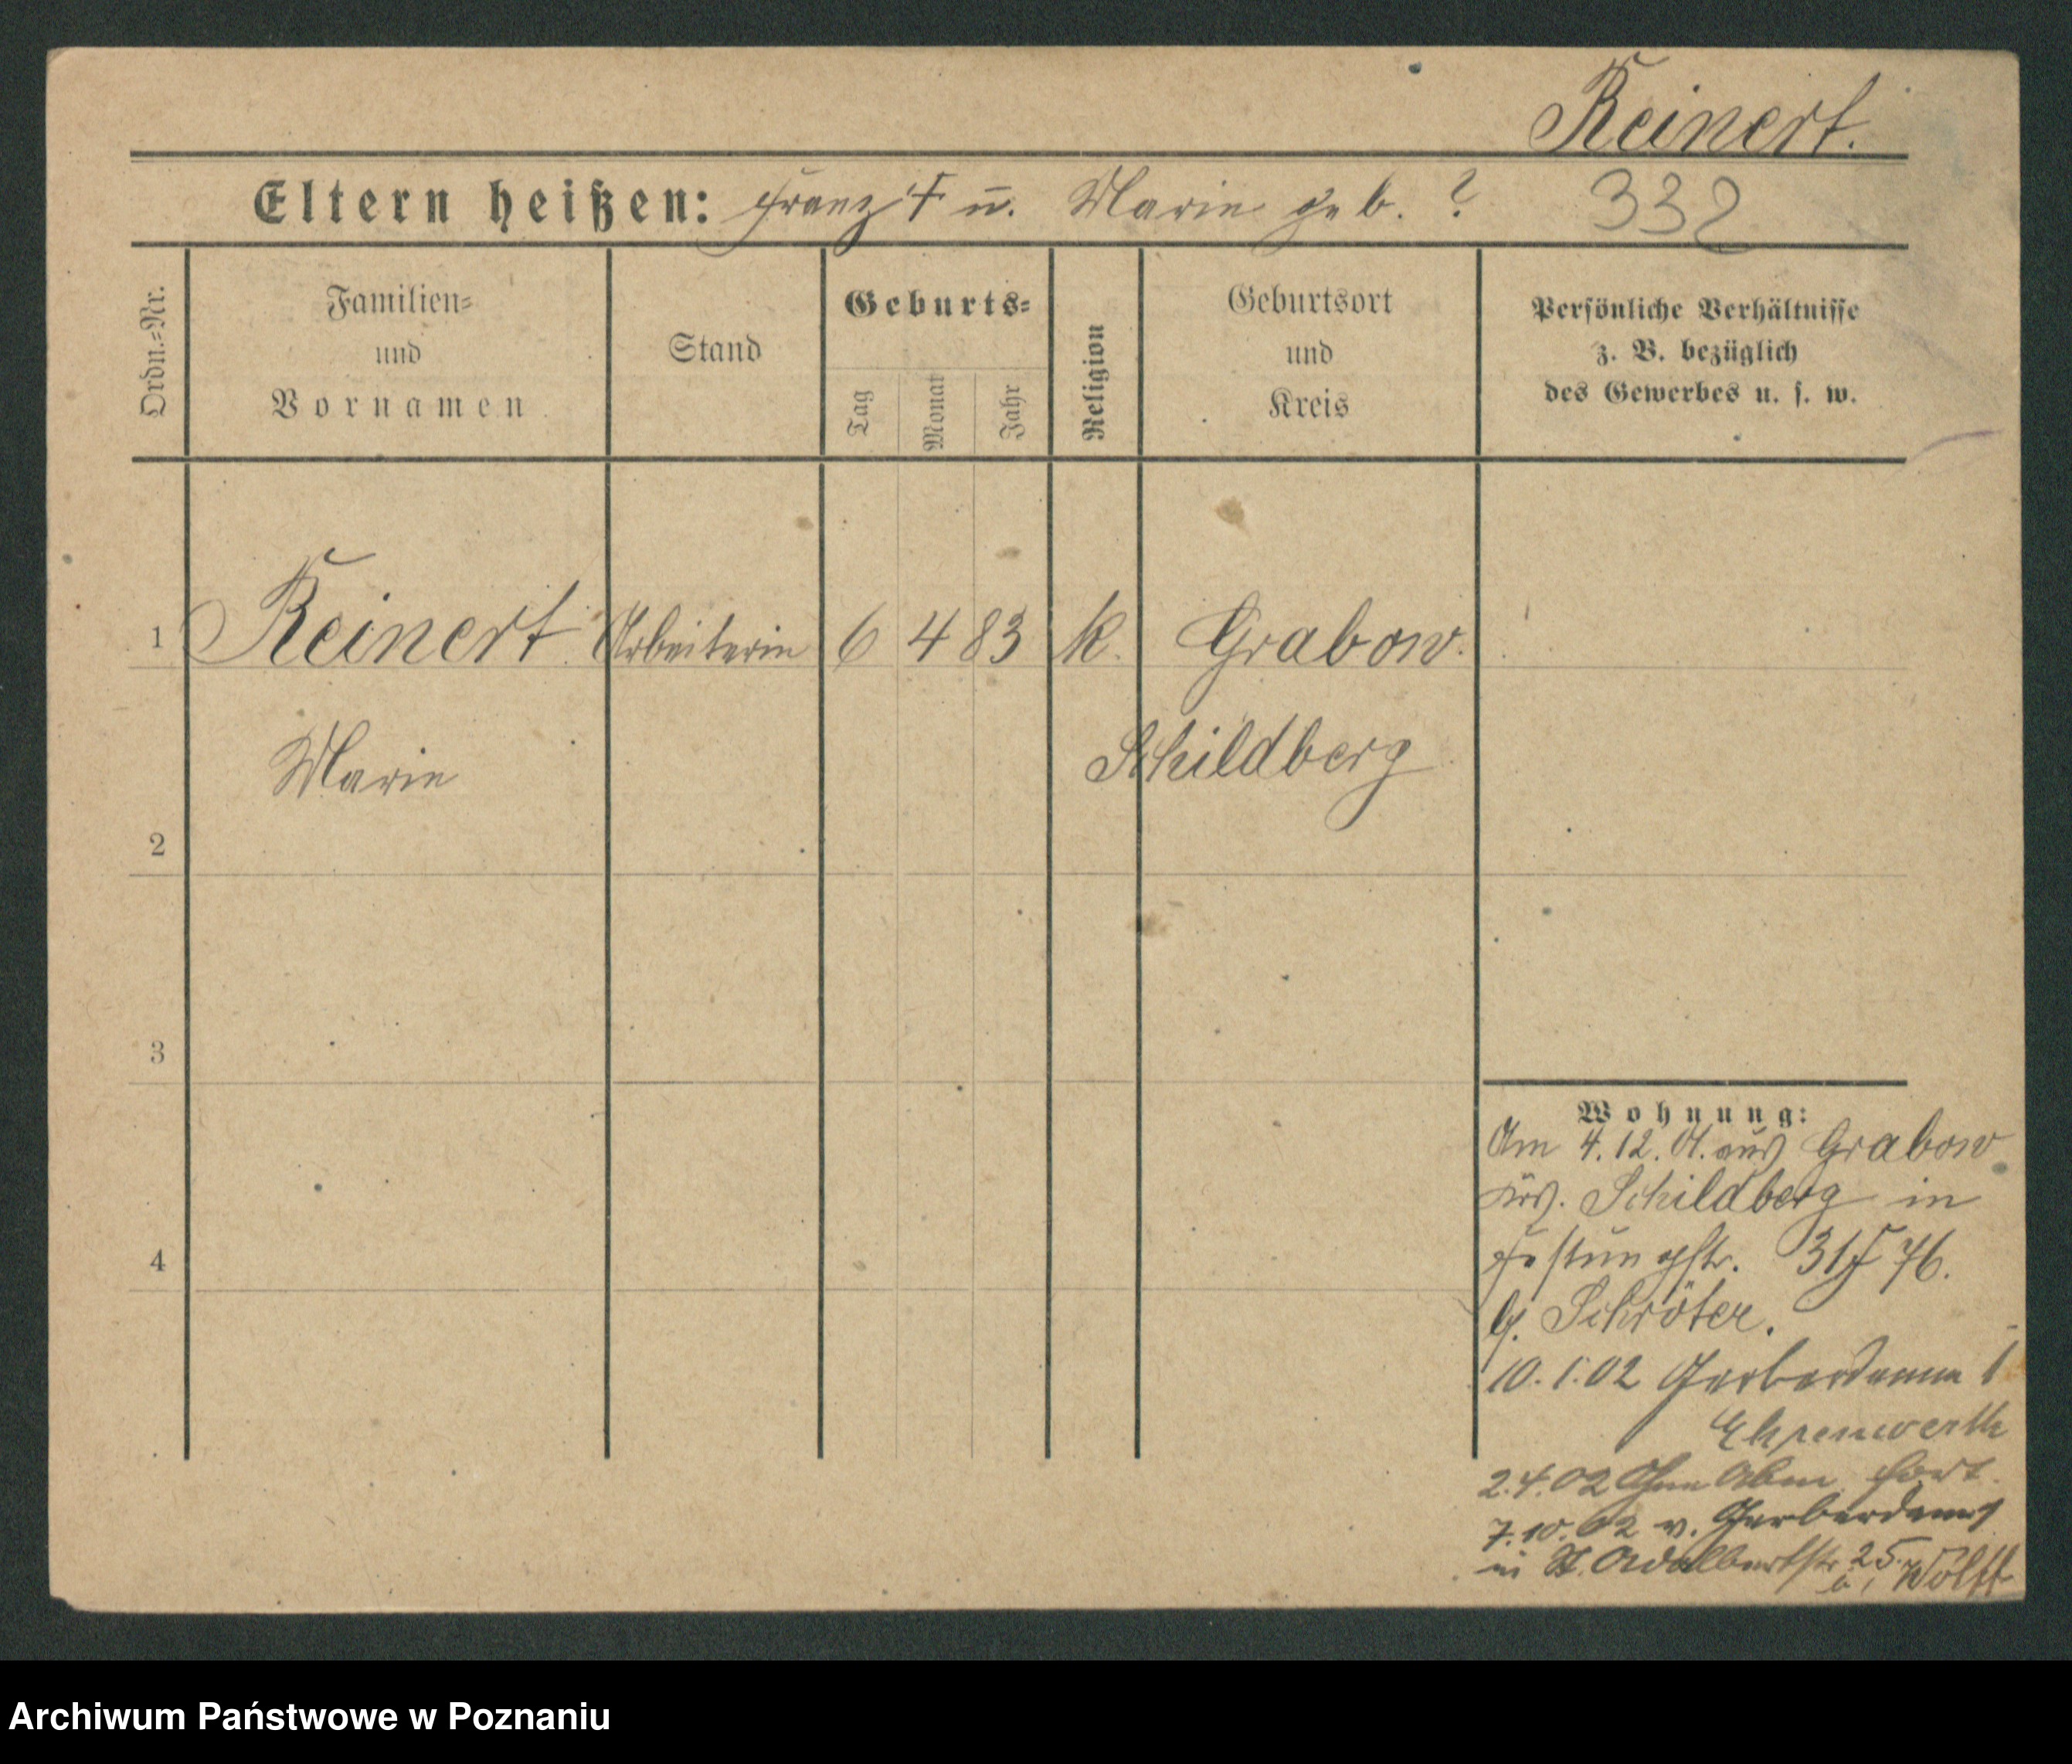 Reinert.
Eltern heißen: Franz † u. Marie geb. ? 332
Ordn.=Nr.
Familien=
und
Vornamen
Stand
Geburts=
Tag
Monat
Jahr
Religion
Geburtsort
und
Kreis
Persönliche Verhältnisse
z. B. bezüglich
des Gewerbes u. s. w.
1 Reinert Arbeiterin 6 4 83 k. Grabow.
Marie Schildberg
2
3
4
Wohnung:
Am 4.12.01. aus Grabow
Krs. Schildberg in
Festungstr. 31 76.
b/. Schröter.
10.1.02 Gerberdamm 1
Ehrenwerth
2.4.02 Ohne Abm. fort.
7.10.02 v. Gerberdamm 1
in St. Adalbertstr 25.
b/ Wolff